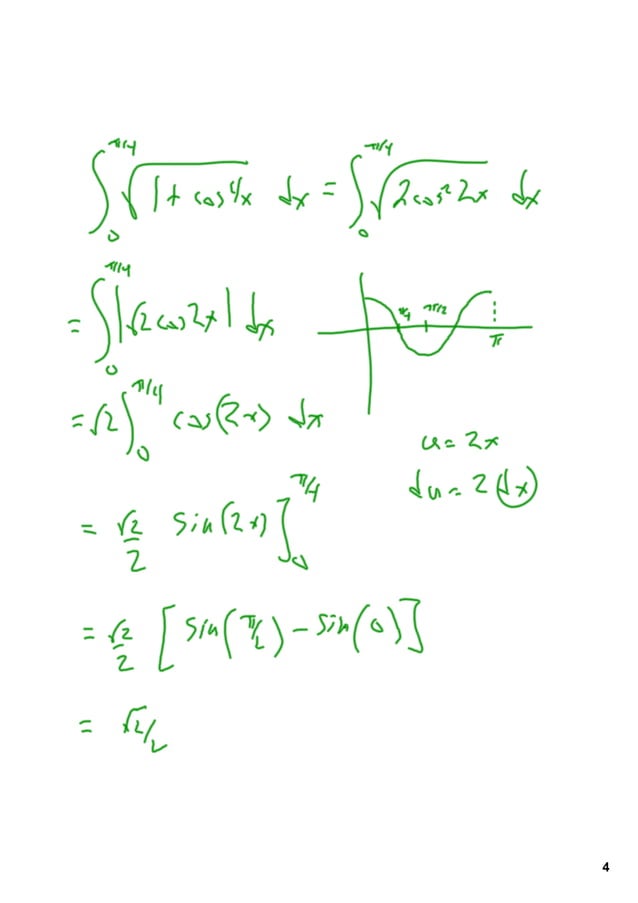 ∫₀^{π/4} √(1 + cos 4x) dx = ∫₀^{π/4} √(2cos² 2x) dx
= ∫₀^{π/4} |√2 cos 2x| dx
π/4 π/2 π
= √2 ∫₀^{π/4} cos(2x) dx
u = 2x
du = 2 dx
= √2/2 sin(2x) ]₀^{π/4}
= √2/2 [ sin(π/2) − sin(0) ]
= √2/2
4